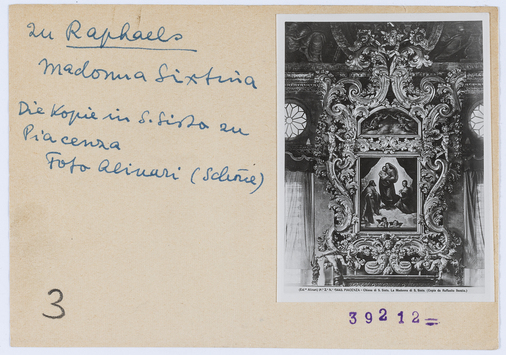 zu Raphaels
Madonna Sixtina
Die Kopie in S. Sisto zu
Piacenza
Foto Alinari (
3
PIACENZA - Chiesa di S. Sisto. La Madonna di S. Sisto. (Copia da Raffaello Sanzio.)
39212=